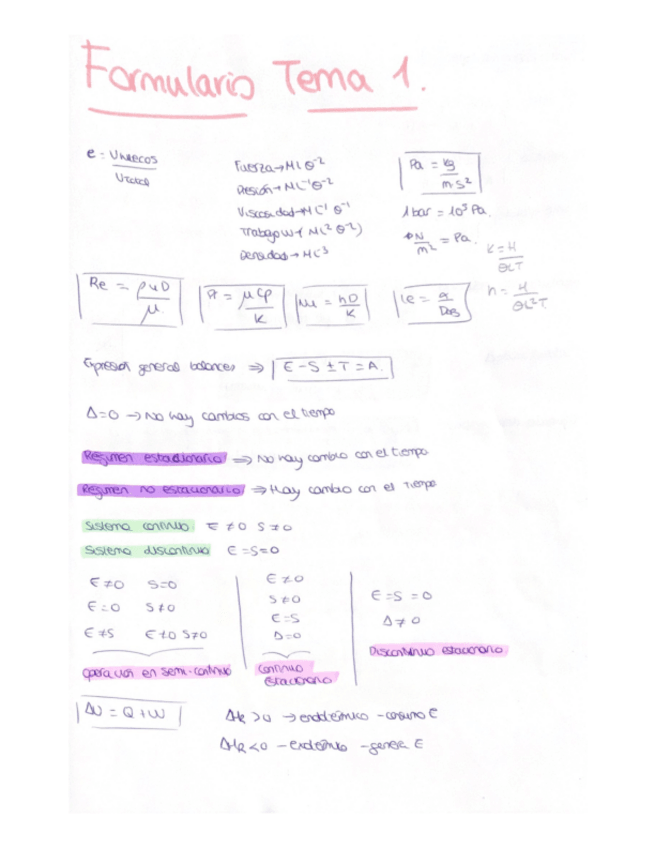 Formulario Tema 1.
e = VHUECOS / VTOTAL
Fuerza → MLθ⁻²
Presión → ML⁻¹θ⁻²
Viscosidad → ML⁻¹θ⁻¹
Trabajo W (ML²θ⁻²)
Densidad → ML⁻³
Pa = kg / m·s²
1 bar = 10⁵ Pa.
N / m² = Pa.
K = H / θLT
h = H / θL²T.
Re = ρuD / μ
Pr = μCp / K
Nu = hD / K
Le = α / DAB
Expresión general balances ⇒ E - S ± T = A.
Δ=0 → No hay cambios con el tiempo
Régimen estacionario ⇒ No hay cambio con el tiempo
Régimen no estacionario ⇒ Hay cambio con el tiempo
Sistema continuo E ≠ 0 S ≠ 0
Sistema discontinuo E = S = 0
E ≠ 0 S = 0
E = 0 S ≠ 0
E ≠ S E ≠ 0 S ≠ 0
operación en semi-continuo
E ≠ 0
S ≠ 0
E = S
Δ = 0
Continuo
estacionario
E = S = 0
Δ ≠ 0
Discontinuo estacionario
ΔU = Q + W
ΔHR > 0 → endotérmico - consumo E
ΔHR < 0 - exotérmico - genera E